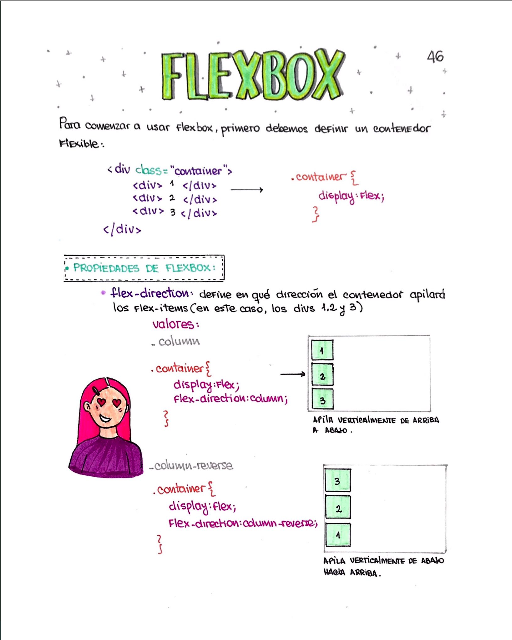 FLEXBOX
46
Para comenzar a usar flexbox, primero debemos definir un contenedor
flexible:
<div class="container">
<div> 1 </div>
<div> 2 </div>
<div> 3 </div>
</div>
.container{
display:flex;
}
• PROPIEDADES DE FLEXBOX:
• flex-direction: define en qué dirección el contenedor apilará
los flex-items (en este caso, los divs 1.2 y 3)
valores:
- column
.container{
display:flex;
flex-direction:column;
}
1
2
3
APILA VERTICALMENTE DE ARRIBA
A ABAJO.
-column-reverse
.container{
display:flex;
flex-direction:column-reverse;
}
3
2
1
APILA VERTICALMENTE DE ABAJO
HACIA ARRIBA.